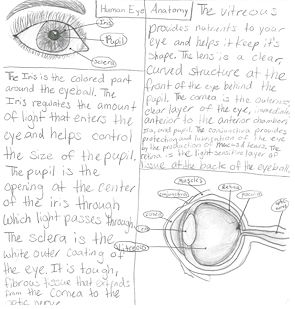 Human Eye Anatomy
Iris
Pupil
Sclera
The Iris is the colored part
around the eyeball. The
Iris regulates the amount
of light that enters the
eye and helps control
the size of the pupil.
The pupil is the
opening at the center
of the iris through
which light passes through.
The sclera is the
white outer coating of
the eye. It is tough,
fibrous tissue that extends
from the cornea to the
optic nerve
The vitreous
provides nutrients to your
eye and helps it keep it's
shape. The lens is a clear,
curved structure at the
front of the eye behind the
pupil. The cornea is the outermost,
clear layer of the eye,
anterior to the anterior chamber,
and pupil. The conjunctiva provides
protection and lubrication of the eye
by the production of and tears. The
retina is the light sensitive layer of
tissue at the back of the eyeball.
Muscles
conjunctiva
Retina
macula
cornea
lens
vitreous